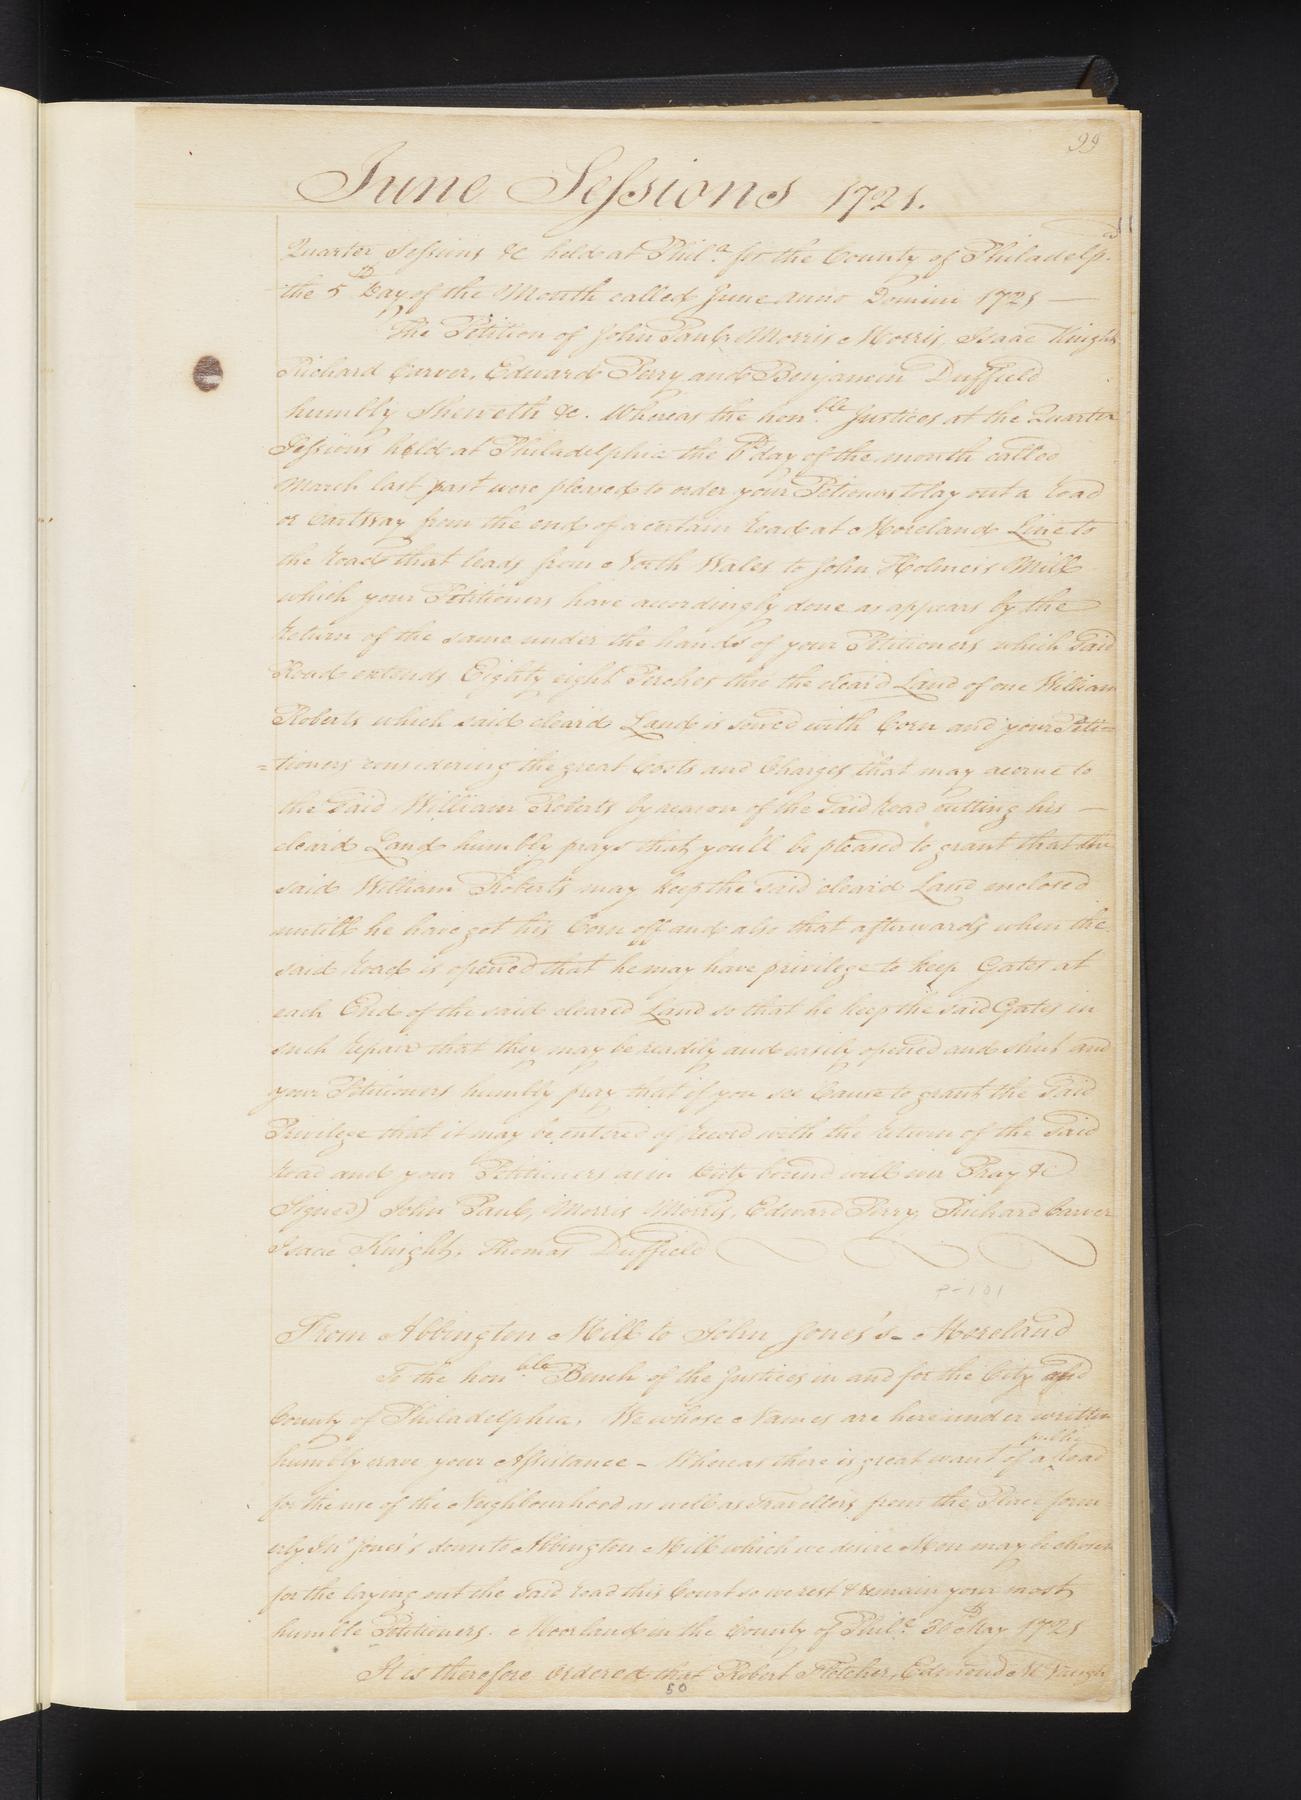 99
June Sessions 1721.
Quarter Sessions &c held at Phila. for the County of Philadelp.
the 5th Day of the Month called June anno Domini 1721 —
The Petition of John Paul, Morris Morris, Isaac Knight
Richard Carver, Edward Perry and Benjamin Duffield
humbly Sheweth &c. Whereas the honble. Justices at the Quarter
Sessions held at Philadelphia the day of the month called
March last past were pleased to order your Petioners to lay out a road
or Cartway from the end of a certain road at Moreland Line to
the road that leads from North Wales to John Holmes's Mill
which your Petitioners have accordingly done as appears by the
return of the same under the hands of your Petitioners which Said
Road extends Eighty eight Perches thro the clear'd Land of one William
Roberts which said clear'd Land is sowed with Corn and your Peti=
=tioners considering the great Costs and Charges that may accrue to
the Said William Roberts by reason of the Said road cutting his —
clear'd Land humbly prays that you'll be pleased to grant that the
said William Roberts may keep the said clear'd Land enclosed
untill he have got his Corn off and also that afterwards when the
said road is opened that he may have privilege to keep Gates at
each End of the said cleared Land so that he keep the said Gates in
such repair that they may be readily and easily opened and shut and
your Petitioners humbly pray that if you see Cause to grant the Said
Privilege that it may be entered of record with the return of the Said
road and your Petitioners as in duty bound will ever Pray &c
Signed) John Paul, Morris Morris, Edward Perry, Richard Carver
Isaac Knight, Thomas Duffield
P-101
From Abbington Mill to John Jones's - Moreland
To the honble. Bench of the Justices in and for the City and
County of Philadelphia. We whose Names are hereunder written
humbly crave your Assistance - Whereas there is great want of a public road
for the use of the Neighbourhood as well as Travellers from the Place form
erly Jno Jones's down to Abbington Mill which we desire Men may be chosen
for the laying out the said road this Court so we rest & remain your most
humble Petitioners. Moorland in the County of Phila. 30th May 1721
It is therefore ordered that Robert Fletcher, Edmond McVaugh
50